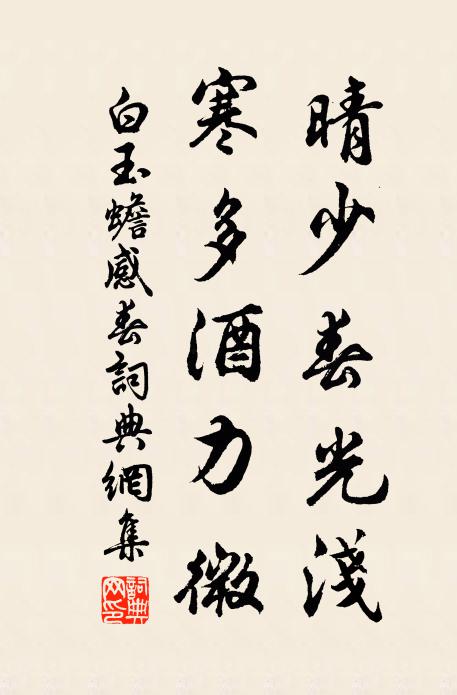 晴少春光淺
寒多酒力微
白玉蟾感春詞典網集
詞典網印